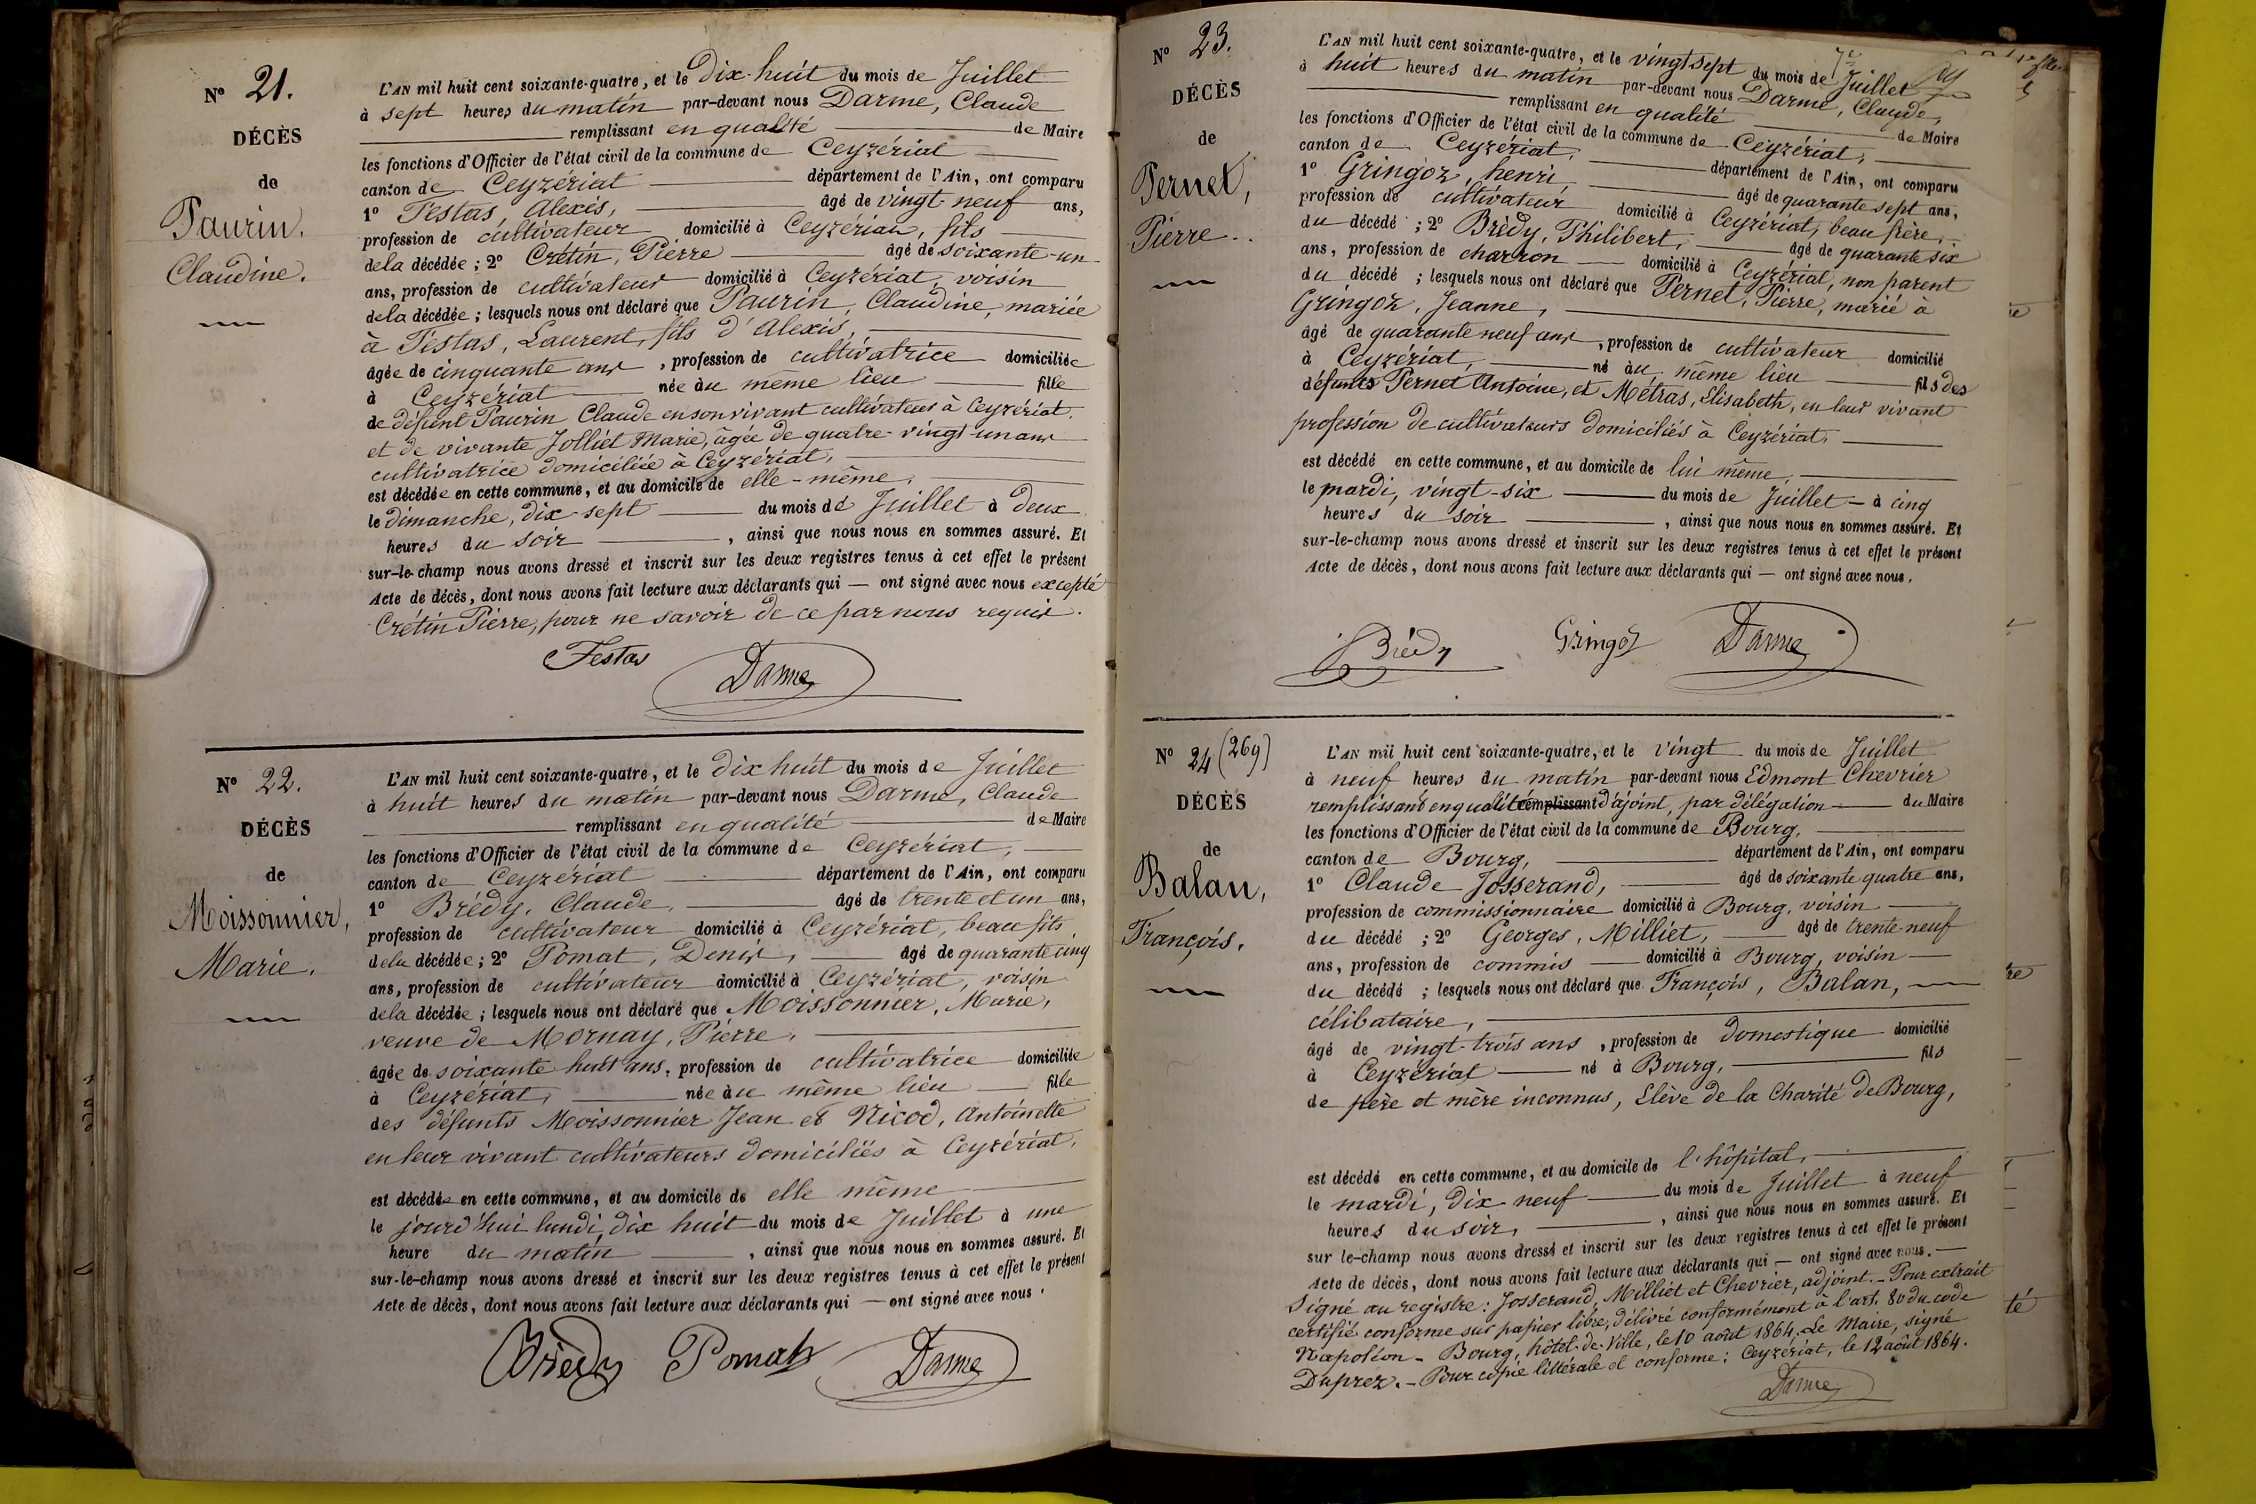 N° 21.
DÉCÈS
de
Paurin,
Claudine.
L'AN mil huit cent soixante-quatre, et le dix-huit du mois de Juillet
à sept heures du matin par-devant nous Darme, Claude
remplissant en qualité de Maire
les fonctions d'Officier de l'état civil de la commune de Ceyzériat
canton de Ceyzériat département de l'Ain, ont comparu
1° Festas, Alexis, âgé de vingt-neuf ans,
profession de cultivateur domicilié à Ceyzériat, fils
de la décédée ; 2° Crétin, Pierre âgé de soixante-un
ans, profession de cultivateur domicilié à Ceyzériat, voisin
de la décédée ; lesquels nous ont déclaré que Paurin, Claudine, mariée
à Festas, Laurent, fils d'Alexis,
âgée de cinquante ans, profession de cultivatrice domiciliée
à Ceyzériat née au même lieu fille
de défunt Paurin Claude en son vivant cultivateur à Ceyzériat.
et de vivante Jolliet Marie, âgée de quatre-vingt-un ans
cultivatrice domiciliée à Ceyzériat,
est décédée en cette commune, et au domicile de elle-même,
le dimanche, dix-sept du mois de Juillet à deux
heures du soir , ainsi que nous nous en sommes assuré. Et
sur-le-champ nous avons dressé et inscrit sur les deux registres tenus à cet effet le présent
Acte de décès, dont nous avons fait lecture aux déclarants qui — ont signé avec nous excepté
Crétin Pierre, pour ne savoir de ce par nous requis.
Festas
Darme
N° 22.
DÉCÈS
de
Moissonnier,
Marie.
L'AN mil huit cent soixante-quatre, et le dix huit du mois de Juillet
à huit heures du matin par-devant nous Darme, Claude
remplissant en qualité de Maire
les fonctions d'Officier de l'état civil de la commune de Ceyzériat,
canton de Ceyzériat département de l'Ain, ont comparu
1° Brédy, Claude, âgé de trente et un ans,
profession de cultivateur domicilié à Ceyzériat, beau fils
de la décédée ; 2° Pomat, Denis, âgé de quarante cinq
ans, profession de cultivateur domicilié à Ceyzériat, voisin
de la décédée ; lesquels nous ont déclaré que Moissonnier, Marie,
veuve de Mornay, Pierre,
âgée de soixante huit ans, profession de cultivatrice domiciliée
à Ceyzériat, née au même lieu fille
des défunts Moissonnier Jean et Nicod, Antoinette
en leur vivant cultivateurs domiciliés à Ceyzériat,
est décédée en cette commune, et au domicile de elle même
le jourd'hui lundi, dix huit du mois de Juillet à une
heure du matin , ainsi que nous nous en sommes assuré. Et
sur-le-champ nous avons dressé et inscrit sur les deux registres tenus à cet effet le présent
Acte de décès, dont nous avons fait lecture aux déclarants qui — ont signé avec nous.
Brédy Pomat Darme
N° 23.
DÉCÈS
de
Pernet,
Pierre.
L'AN mil huit cent soixante-quatre, et le vingt sept du mois de Juillet
à huit heures du matin par-devant nous Darme, Claude,
remplissant en qualité de Maire
les fonctions d'Officier de l'état civil de la commune de Ceyzériat,
canton de Ceyzériat, département de l'Ain, ont comparu
1° Gringoz, henri âgé de quarante sept ans,
profession de cultivateur domicilié à Ceyzériat, beau frère,
du décédé ; 2° Brédy, Philibert, âgé de quarante six
ans, profession de charron domicilié à Ceyzériat, non parent
du décédé ; lesquels nous ont déclaré que Pernet, Pierre, marié à
Gringoz, Jeanne,
âgé de quarante neuf ans, profession de cultivateur domicilié
à Ceyzériat, né au même lieu fils des
défunts Pernet Antoine, et Métras, Elisabeth, en leur vivant
profession de cultivateurs domiciliés à Ceyzériat,
est décédé en cette commune, et au domicile de lui même,
le mardi, vingt-six du mois de Juillet — à cinq
heures du soir , ainsi que nous nous en sommes assuré. Et
sur-le-champ nous avons dressé et inscrit sur les deux registres tenus à cet effet le présent
Acte de décès, dont nous avons fait lecture aux déclarants qui — ont signé avec nous.
Brédy Gringoz Darme
N° 24 (269)
DÉCÈS
de
Balan,
François.
L'AN mil huit cent soixante-quatre, et le vingt du mois de Juillet
à neuf heures du matin par-devant nous Edmont Chevrier
remplissant en qualité remplissant d'ajoint, par délégation du Maire
les fonctions d'Officier de l'état civil de la commune de Bourg,
canton de Bourg, département de l'Ain, ont comparu
1° Claude Josserand, âgé de soixante quatre ans,
profession de commissionnaire domicilié à Bourg, voisin
du décédé ; 2° Georges, Milliet, âgé de trente-neuf
ans, profession de commis domicilié à Bourg, voisin
du décédé ; lesquels nous ont déclaré que François, Balan,
célibataire,
âgé de vingt-trois ans, profession de domestique domicilié
à Ceyzériat né à Bourg, fils
de père et mère inconnus, Elève de la Charité de Bourg,
est décédé en cette commune, et au domicile de l'hôpital,
le mardi, dix neuf du mois de Juillet à neuf
heures du soir, , ainsi que nous nous en sommes assuré. Et
sur le-champ nous avons dressé et inscrit sur les deux registres tenus à cet effet le présent
Acte de décès, dont nous avons fait lecture aux déclarants qui — ont signé avec nous. —
Signé au registre : Josserand, Milliet et Chevrier, adjoint. — Pour extrait
certifié conforme sur papier libre, délivré conformément à l'art. 80 du code
Napoléon — Bourg, hôtel-de-Ville, le 10 août 1864. Le Maire, signé
Duprez. — Pour copie littérale et conforme : Ceyzériat, le 12 août 1864.
Darme